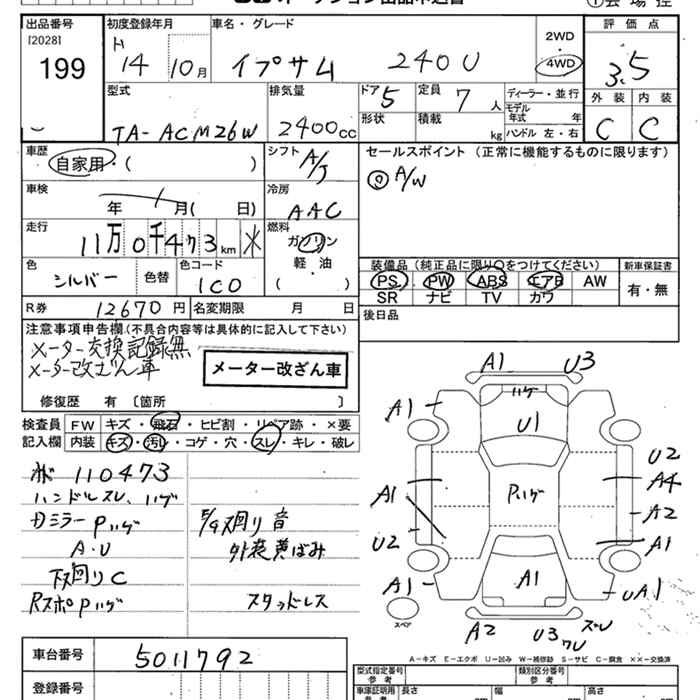 オークション出品申込書
① 会場控
出品番号 初度登録年月 車名・グレード 2WD 評価点
[2028] H 14 10月 イプサム 240U 4WD 3.5
199
型式 排気量 ドア 5 定員 7人 ディーラー・並行 外装 内装
TA-ACM26W 2400cc 形状 積載 kg モデル年式 年 C C
ハンドル 左・右
車歴 自家用・( ) シフト A/T セールスポイント (正常に機能するものに限ります)
⑨ A/W
車検 年 月( 日) 冷房 AAC
走行 11万0千473km ※ 燃料 ガソリン
軽・油
( )
色 シルバー 色替 色コード 1C0
装備品 (純正品に限り○をつけてください) 新車保証書
PS PW ABS エアB AW 有・無
SR ナビ TV カワ
R券 12670円 名変期限 月 日
後日品
注意事項申告欄(不具合内容等は具体的に記入して下さい)
メーター交換記録無
メーター改ざん車
メーター改ざん車
修復歴 有 〔箇所 〕
検査員 FW キズ・飛石・ヒビ割・リペア跡・×要
記入欄 内装 キズ・汚れ・コゲ・穴・スレ・キレ・破レ
110473
ハンドルスレ、ハゲ
Dミラー Pハゲ
A・U
下廻りC
RスポPハゲ
F/G廻り音
外装黄ばみ
スタッドレス
A1 U3
ハゲ
A1
U1
U2
A4
A1 Pハゲ A2
U2 A1
A1 A1 UA1
スペア
A2 U3 ズレ
ワレ
A-キズ E-エクボ U-凹み W-補修跡 S-サビ C-腐食 ××-交換済
車台番号 5011792
登録番号
型式指定番号 参考 類別区分番号 参考
車庫証明用 参考 長さ 幅 高さ